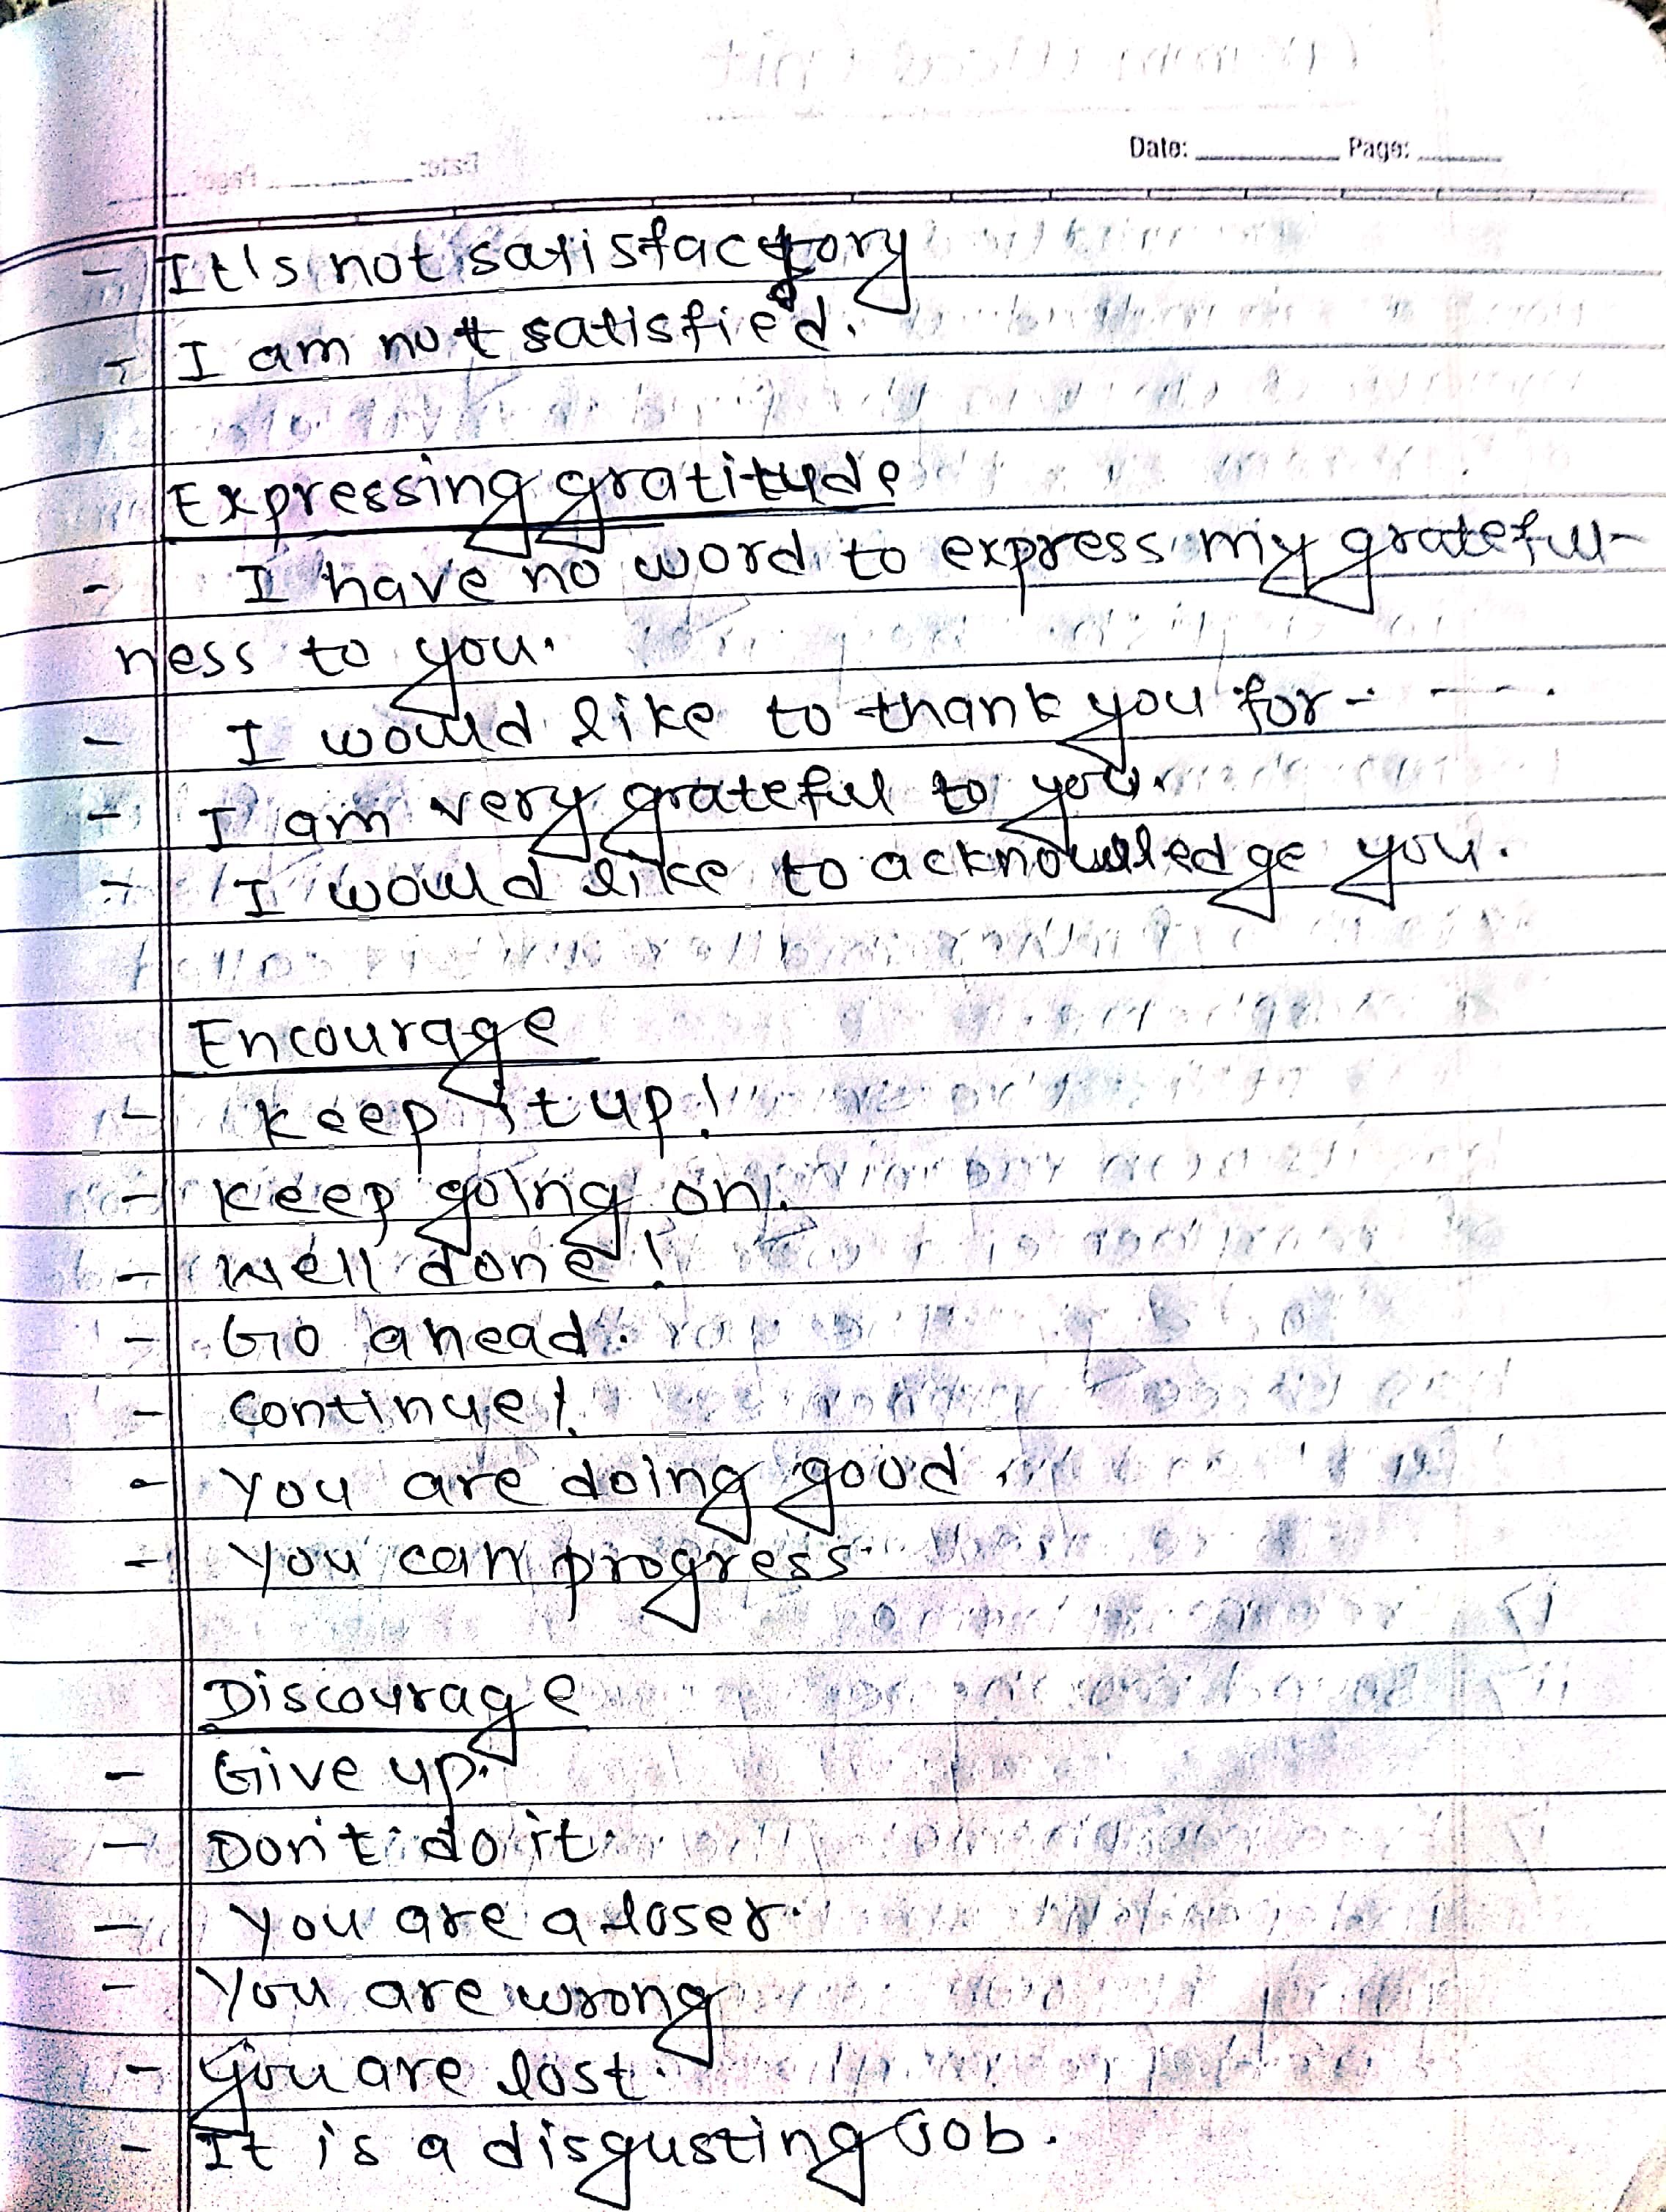 Date: Page:
- It's not satisfactory
- I am not satisfied.
Expressing gratitude
- I have no word to express my grateful-
ness to you.
- I would like to thank you for - - - - .
- I am very grateful to you.
- I would like to acknowledge you.
Encourage
- Keep it up!
- Keep going on.
- Well done!
- Go ahead.
- Continue!
- You are doing good.
- You can progress.
Discourage
- Give up.
- Don't do it.
- You are a loser.
- You are wrong
- You are lost.
- It is a disgusting Job.